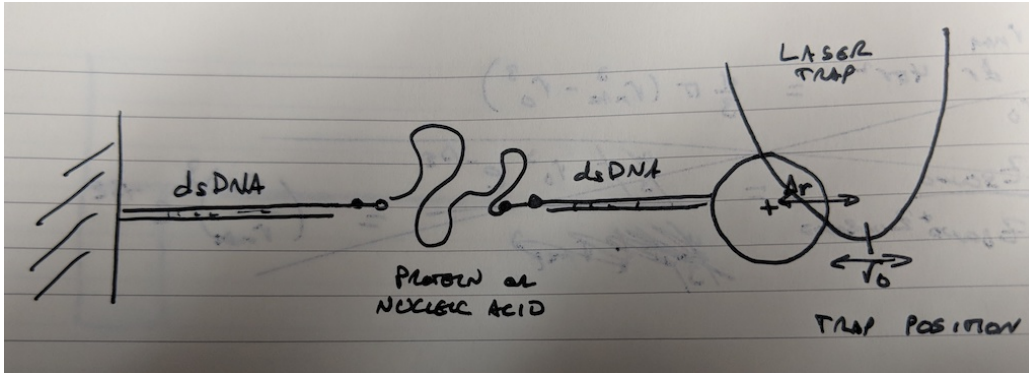 LASER
TRAP
dsDNA
dsDNA
Δr
+
PROTEIN OR
NUCLEIC ACID
r₀
TRAP POSITION